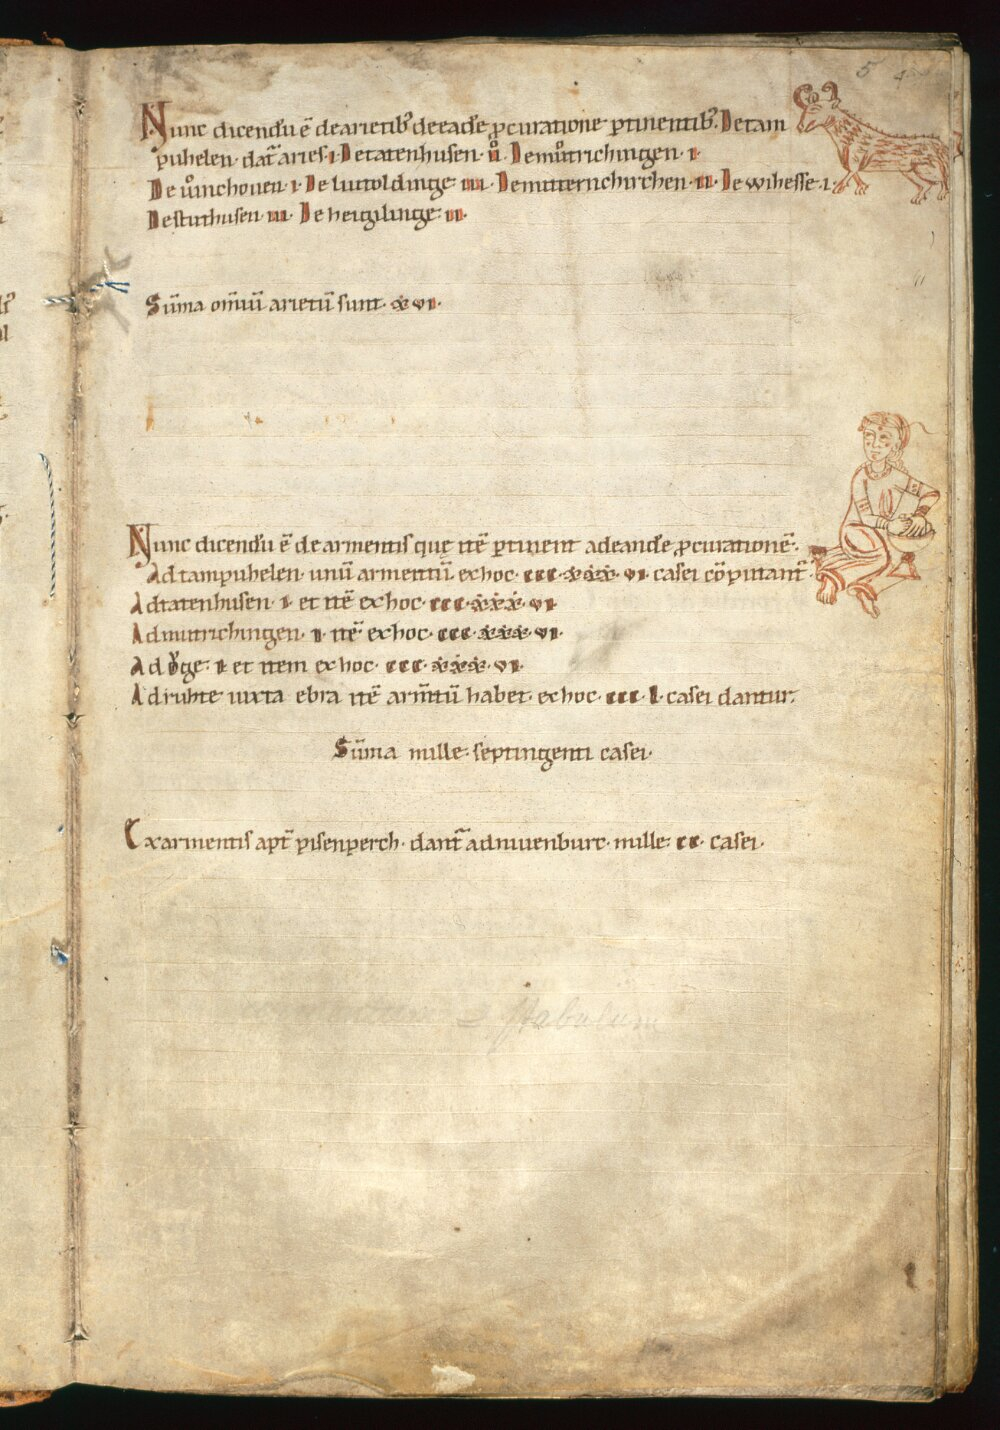 5
Nunc dicendū ē de arietib⁹ de eadē ꝓcuratione ꝑtinentib⁹. De tam
puhelen. dat͛ aries. i. De tatenhusen. ii. De mvͦtrichingen. i.
De vͦinchouen. i. De liutoldinge. iii. De mitternchirchen. ii. De wihesse. i.
De stuthusen. iii. De heigilinge. ii.
Sūma om̄iū arietū sunt. xvi.
Nunc dicendū ē de armentis quę itē ꝑtinent ad eandē ꝓcurationē.
Ad tampuhelen. unū armentū. ex hoc. ccc. xxx. vi. casei cōputant͛.
Ad tatenhusen. i. et itē ex hoc. ccc. xxx. vi.
Ad mutrichingen. i. itē ex hoc. ccc. xxx. vi.
i. et item ex hoc. ccc. xxx. vi.
Ad ruhte iuxta ebra itē arm̄tū habet. ex hoc. ccc. l. casei dantur.
Sūma mille. septingenti casei.
Ex armentis apt̄ pisenperch. dant͛ ad niuenburc. mille. cc. casei.
= stabulum